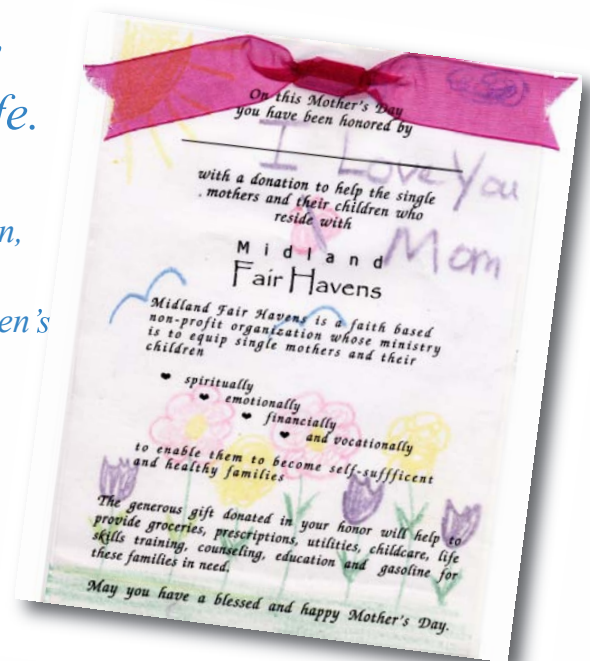 fe.
n,
en's
On this Mother's Day
you have been honored by
I Love You
Mom
with a donation to help the single
mothers and their children who
reside with
Midland
Fair Havens
Midland Fair Havens is a faith based
non-profit organization whose ministry
is to equip single mothers and their
children
❤ spiritually
❤ emotionally
❤ financially
❤ and vocationally
to enable them to become self-suffficent
and healthy families
The generous gift donated in your honor will help to
provide groceries, prescriptions, utilities, childcare, life
skills training, counseling, education and gasoline for
these families in need.
May you have a blessed and happy Mother's Day.